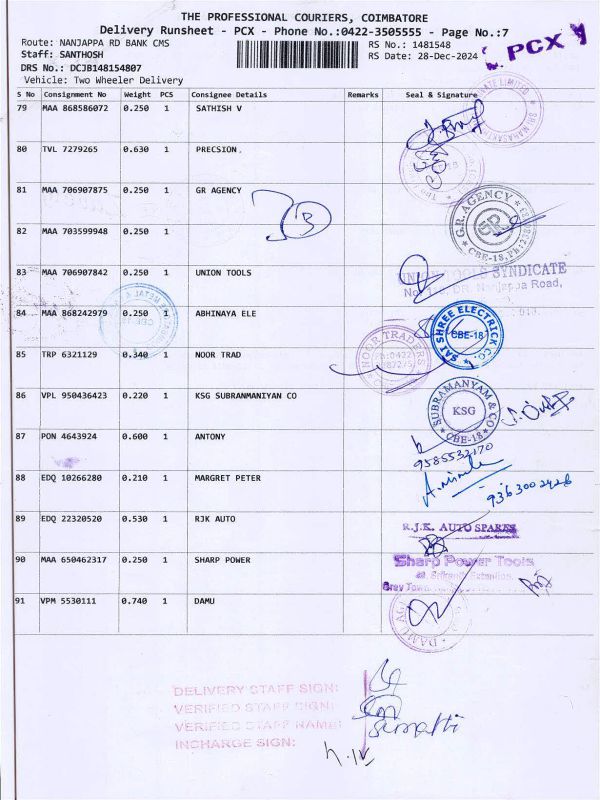 THE PROFESSIONAL COURIERS, COIMBATORE
Delivery Runsheet - PCX - Phone No.:0422-3505555 - Page No.:7
Route: NANJAPPA RD BANK CMS RS No.: 1481548
Staff: SANTHOSH RS Date: 28-Dec-2024
PCX
DRS No.: DCJB148154807
Vehicle: Two Wheeler Delivery
S No Consignment No Weight PCS Consignee Details Remarks Seal & Signature
79 MAA 868586072 0.250 1 SATHISH V
80 TVL 7279265 0.630 1 PRECSION.
81 MAA 706907875 0.250 1 GR AGENCY
G.R. AGENCY
GR
CBE-18,
82 MAA 703599948 0.250 1
83 MAA 706907842 0.250 1 UNION TOOLS
UNION TOOLS SYNDICATE
DR. Nanjappa Road,
84 MAA 868242979 0.250 1 ABHINAYA ELE
SAI SHREE ELECTRICK CO.
CBE-18
85 TRP 6321129 0.340 1 NOOR TRAD
NOOR TRADERS
86 VPL 950436423 0.220 1 KSG SUBRANMANIYAN CO
SUBRAMANYAM & CO
KSG
CBE-18
87 PON 4643924 0.600 1 ANTONY
9585532170
88 EDQ 10266280 0.210 1 MARGRET PETER
9363002426
89 EDQ 22320520 0.530 1 RJK AUTO
R.J.K. AUTO SPARES
90 MAA 650462317 0.250 1 SHARP POWER
Sharp Power Tools
91 VPM 5530111 0.740 1 DAMU
DELIVERY STAFF SIGN:
VERIFIED STAFF SIGN:
VERIFIED STAFF NAME:
INCHARGE SIGN: